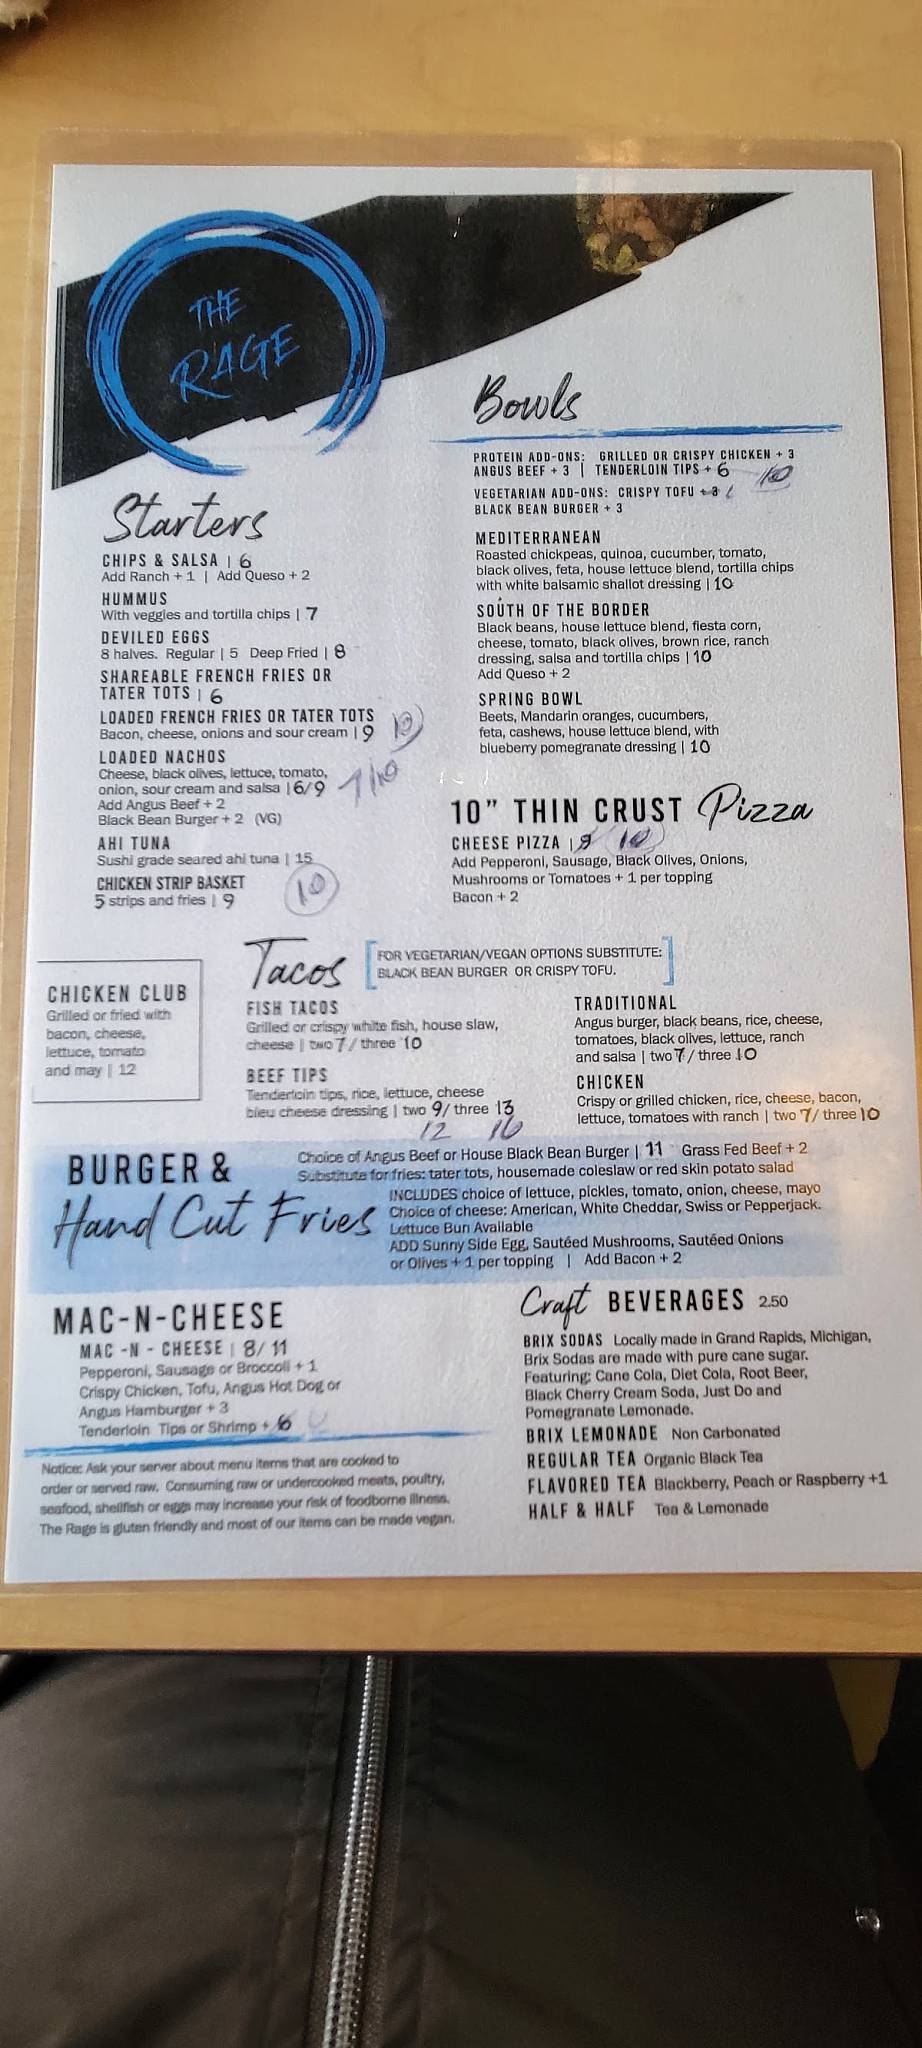 THE
RAGE
Starters
CHIPS & SALSA | 6
Add Ranch + 1 | Add Queso + 2
HUMMUS
With veggies and tortilla chips | 7
DEVILED EGGS
8 halves. Regular | 5 Deep Fried | 8
SHAREABLE FRENCH FRIES OR
TATER TOTS | 6
LOADED FRENCH FRIES OR TATER TOTS
Bacon, cheese, onions and sour cream | 9 10
LOADED NACHOS
Cheese, black olives, lettuce, tomato,
onion, sour cream and salsa | 6/9 7/10
Add Angus Beef + 2
Black Bean Burger + 2 (VG)
AHI TUNA
Sushi grade seared ahi tuna | 15
CHICKEN STRIP BASKET
5 strips and fries | 9 10
Bowls
PROTEIN ADD-ONS: GRILLED OR CRISPY CHICKEN + 3
ANGUS BEEF + 3 | TENDERLOIN TIPS + 6 10
VEGETARIAN ADD-ONS: CRISPY TOFU + 3
BLACK BEAN BURGER + 3
MEDITERRANEAN
Roasted chickpeas, quinoa, cucumber, tomato,
black olives, feta, house lettuce blend, tortilla chips
with white balsamic shallot dressing | 10
SOUTH OF THE BORDER
Black beans, house lettuce blend, fiesta corn,
cheese, tomato, black olives, brown rice, ranch
dressing, salsa and tortilla chips | 10
Add Queso + 2
SPRING BOWL
Beets, Mandarin oranges, cucumbers,
feta, cashews, house lettuce blend, with
blueberry pomegranate dressing | 10
10” THIN CRUST Pizza
CHEESE PIZZA | 9 10
Add Pepperoni, Sausage, Black Olives, Onions,
Mushrooms or Tomatoes + 1 per topping
Bacon + 2
CHICKEN CLUB
Grilled or fried with
bacon, cheese,
lettuce, tomato
and may | 12
Tacos
FOR VEGETARIAN/VEGAN OPTIONS SUBSTITUTE:
BLACK BEAN BURGER OR CRISPY TOFU.
FISH TACOS
Grilled or crispy white fish, house slaw,
cheese | two 7 / three 10
BEEF TIPS
Tenderloin tips, rice, lettuce, cheese
bleu cheese dressing | two 9/ three 13
12 16
TRADITIONAL
Angus burger, black beans, rice, cheese,
tomatoes, black olives, lettuce, ranch
and salsa | two 7 / three 10
CHICKEN
Crispy or grilled chicken, rice, cheese, bacon,
lettuce, tomatoes with ranch | two 7/ three 10
BURGER &
Hand Cut Fries
Choice of Angus Beef or House Black Bean Burger | 11 Grass Fed Beef + 2
Substitute for fries: tater tots, housemade coleslaw or red skin potato salad
INCLUDES choice of lettuce, pickles, tomato, onion, cheese, mayo
Choice of cheese: American, White Cheddar, Swiss or Pepperjack.
Lettuce Bun Available
ADD Sunny Side Egg, Sautéed Mushrooms, Sautéed Onions
or Olives + 1 per topping | Add Bacon + 2
MAC-N-CHEESE
MAC -N - CHEESE | 8/ 11
Pepperoni, Sausage or Broccoli + 1
Crispy Chicken, Tofu, Angus Hot Dog or
Angus Hamburger + 3
Tenderloin Tips or Shrimp + 6
Notice: Ask your server about menu items that are cooked to
order or served raw. Consuming raw or undercooked meats, poultry,
seafood, shellfish or eggs may increase your risk of foodborne illness.
The Rage is gluten friendly and most of our items can be made vegan.
Craft BEVERAGES 2.50
BRIX SODAS Locally made in Grand Rapids, Michigan,
Brix Sodas are made with pure cane sugar.
Featuring: Cane Cola, Diet Cola, Root Beer,
Black Cherry Cream Soda, Just Do and
Pomegranate Lemonade.
BRIX LEMONADE Non Carbonated
REGULAR TEA Organic Black Tea
FLAVORED TEA Blackberry, Peach or Raspberry +1
HALF & HALF Tea & Lemonade